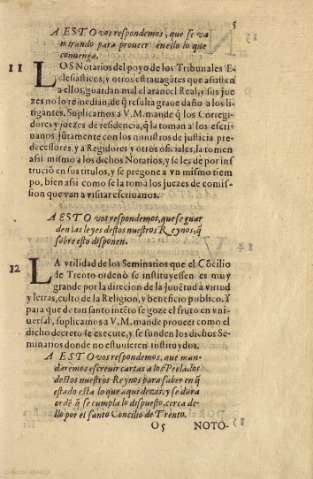 5
A ESTO vos respondemos, que se va
mirando para proueer en ello lo que
conuenga.
11 LOS Notarios del poyo de los Tribunales E-
clesiasticos, y otros estrauagātes que asisten
a ellos, guardan mal el arancel Real, y sus jue
zes no lo remedian, de q̄ resulta graue daño a los li-
tigantes. Suplicamos a V.M. mande q̄ los Corregi-
dores y juezes de residencia, q̄ la toman a los escri-
uanos, juntamente con los ministros de justicia pre-
decessores, y a Regidores y otros oficiales, la tomen
asi mismo a los dichos Notarios, y se les de por ins-
trucion en sus titulos, y se pregone a vn mismo tiem
po, bien asi como se la toma los juezes de comis-
sion que van a visitar escriuanos.
A ESTO vos respondemos, que se guar
den las leyes destos nuestros Reynos, q̄
sobre esto disponen.
12 LA vtilidad de los Seminarios que el Cōcilio
de Trento ordenò se instituyessen es muy
grande por la direcion de la juuētud à virtud
y letras, culto de la Religion, y beneficio publico. Y
para que de tan santo intēto se goze el fruto en vni-
uersal, suplicamos a V.M. mande proueer como el
dicho decreto se execute, y se funden los dichos Se-
minarios donde no estuuieren instituydos.
A ESTO vos respondemos, que man-
daremos escreuir cartas a los Prelados
destos nuestros Reynos para saber en q̄
estado esta lo que aqui dezis, y se dara
ordē q̄ se cumpla lo dispuesto, cerca de-
llo por el santo Concilio de Trento.
O5 NOTO-